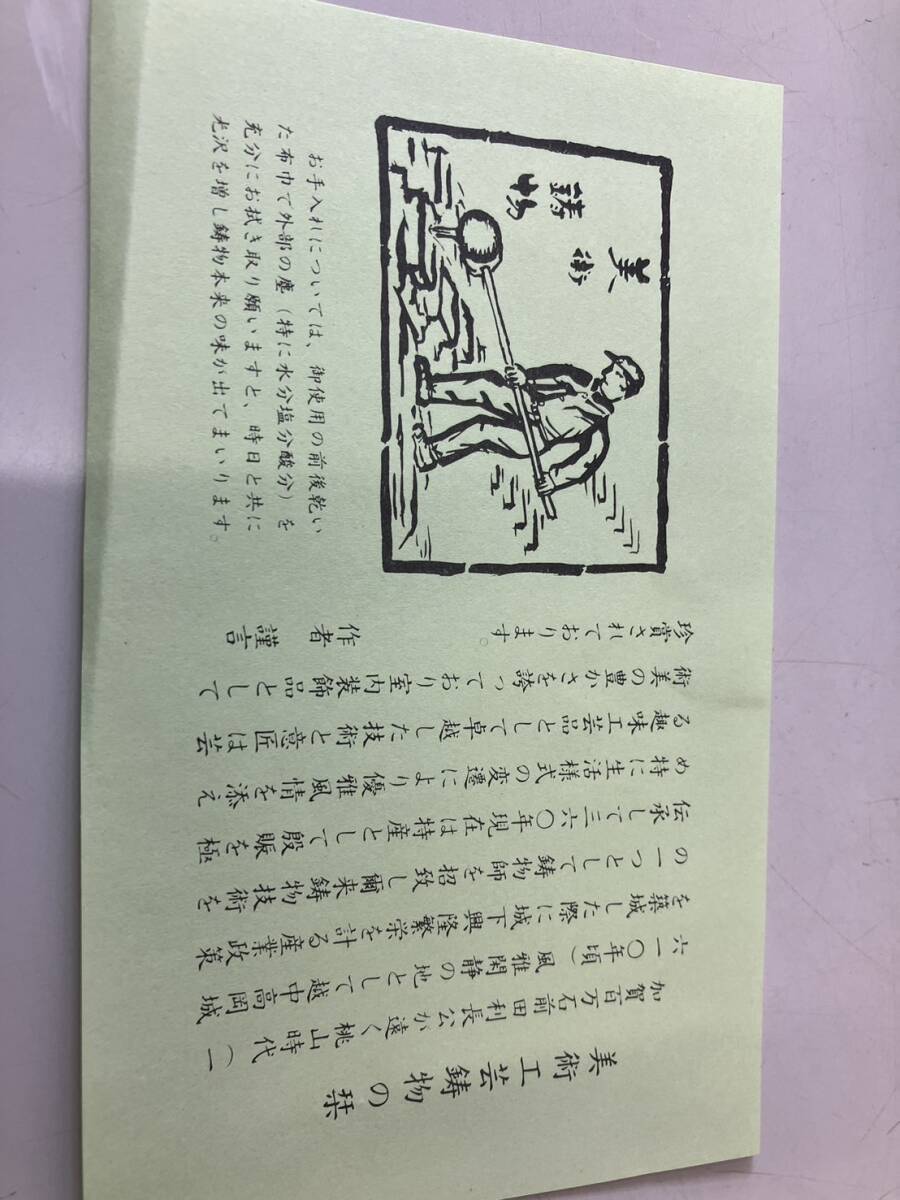 美術工芸鋳物の栞
加賀百万石前田利長公が遠く桃山時代（一
六一〇年頃）風雅閑静の地として越中高岡城
を築城した際に城下興隆繁栄を計る産業政策
の一つとして鋳物師を招致し爾来鋳物技術を
伝承して三六〇年現在は特産として殷賑を極
め特に生活様式の変遷により優雅風情を添え
る趣味工芸品として卓越した技術と意匠は芸
術美の豊かさを誇っており室内装飾品として
珍賞されております。
作者 謹言
美術
鋳物
お手入れについては、御使用の前後乾い
た布巾で外部の塵（特に水分塩分酸分）を
充分にお拭き取り願いますと、時日と共に
光沢を増し鋳物本来の味が出てまいります。